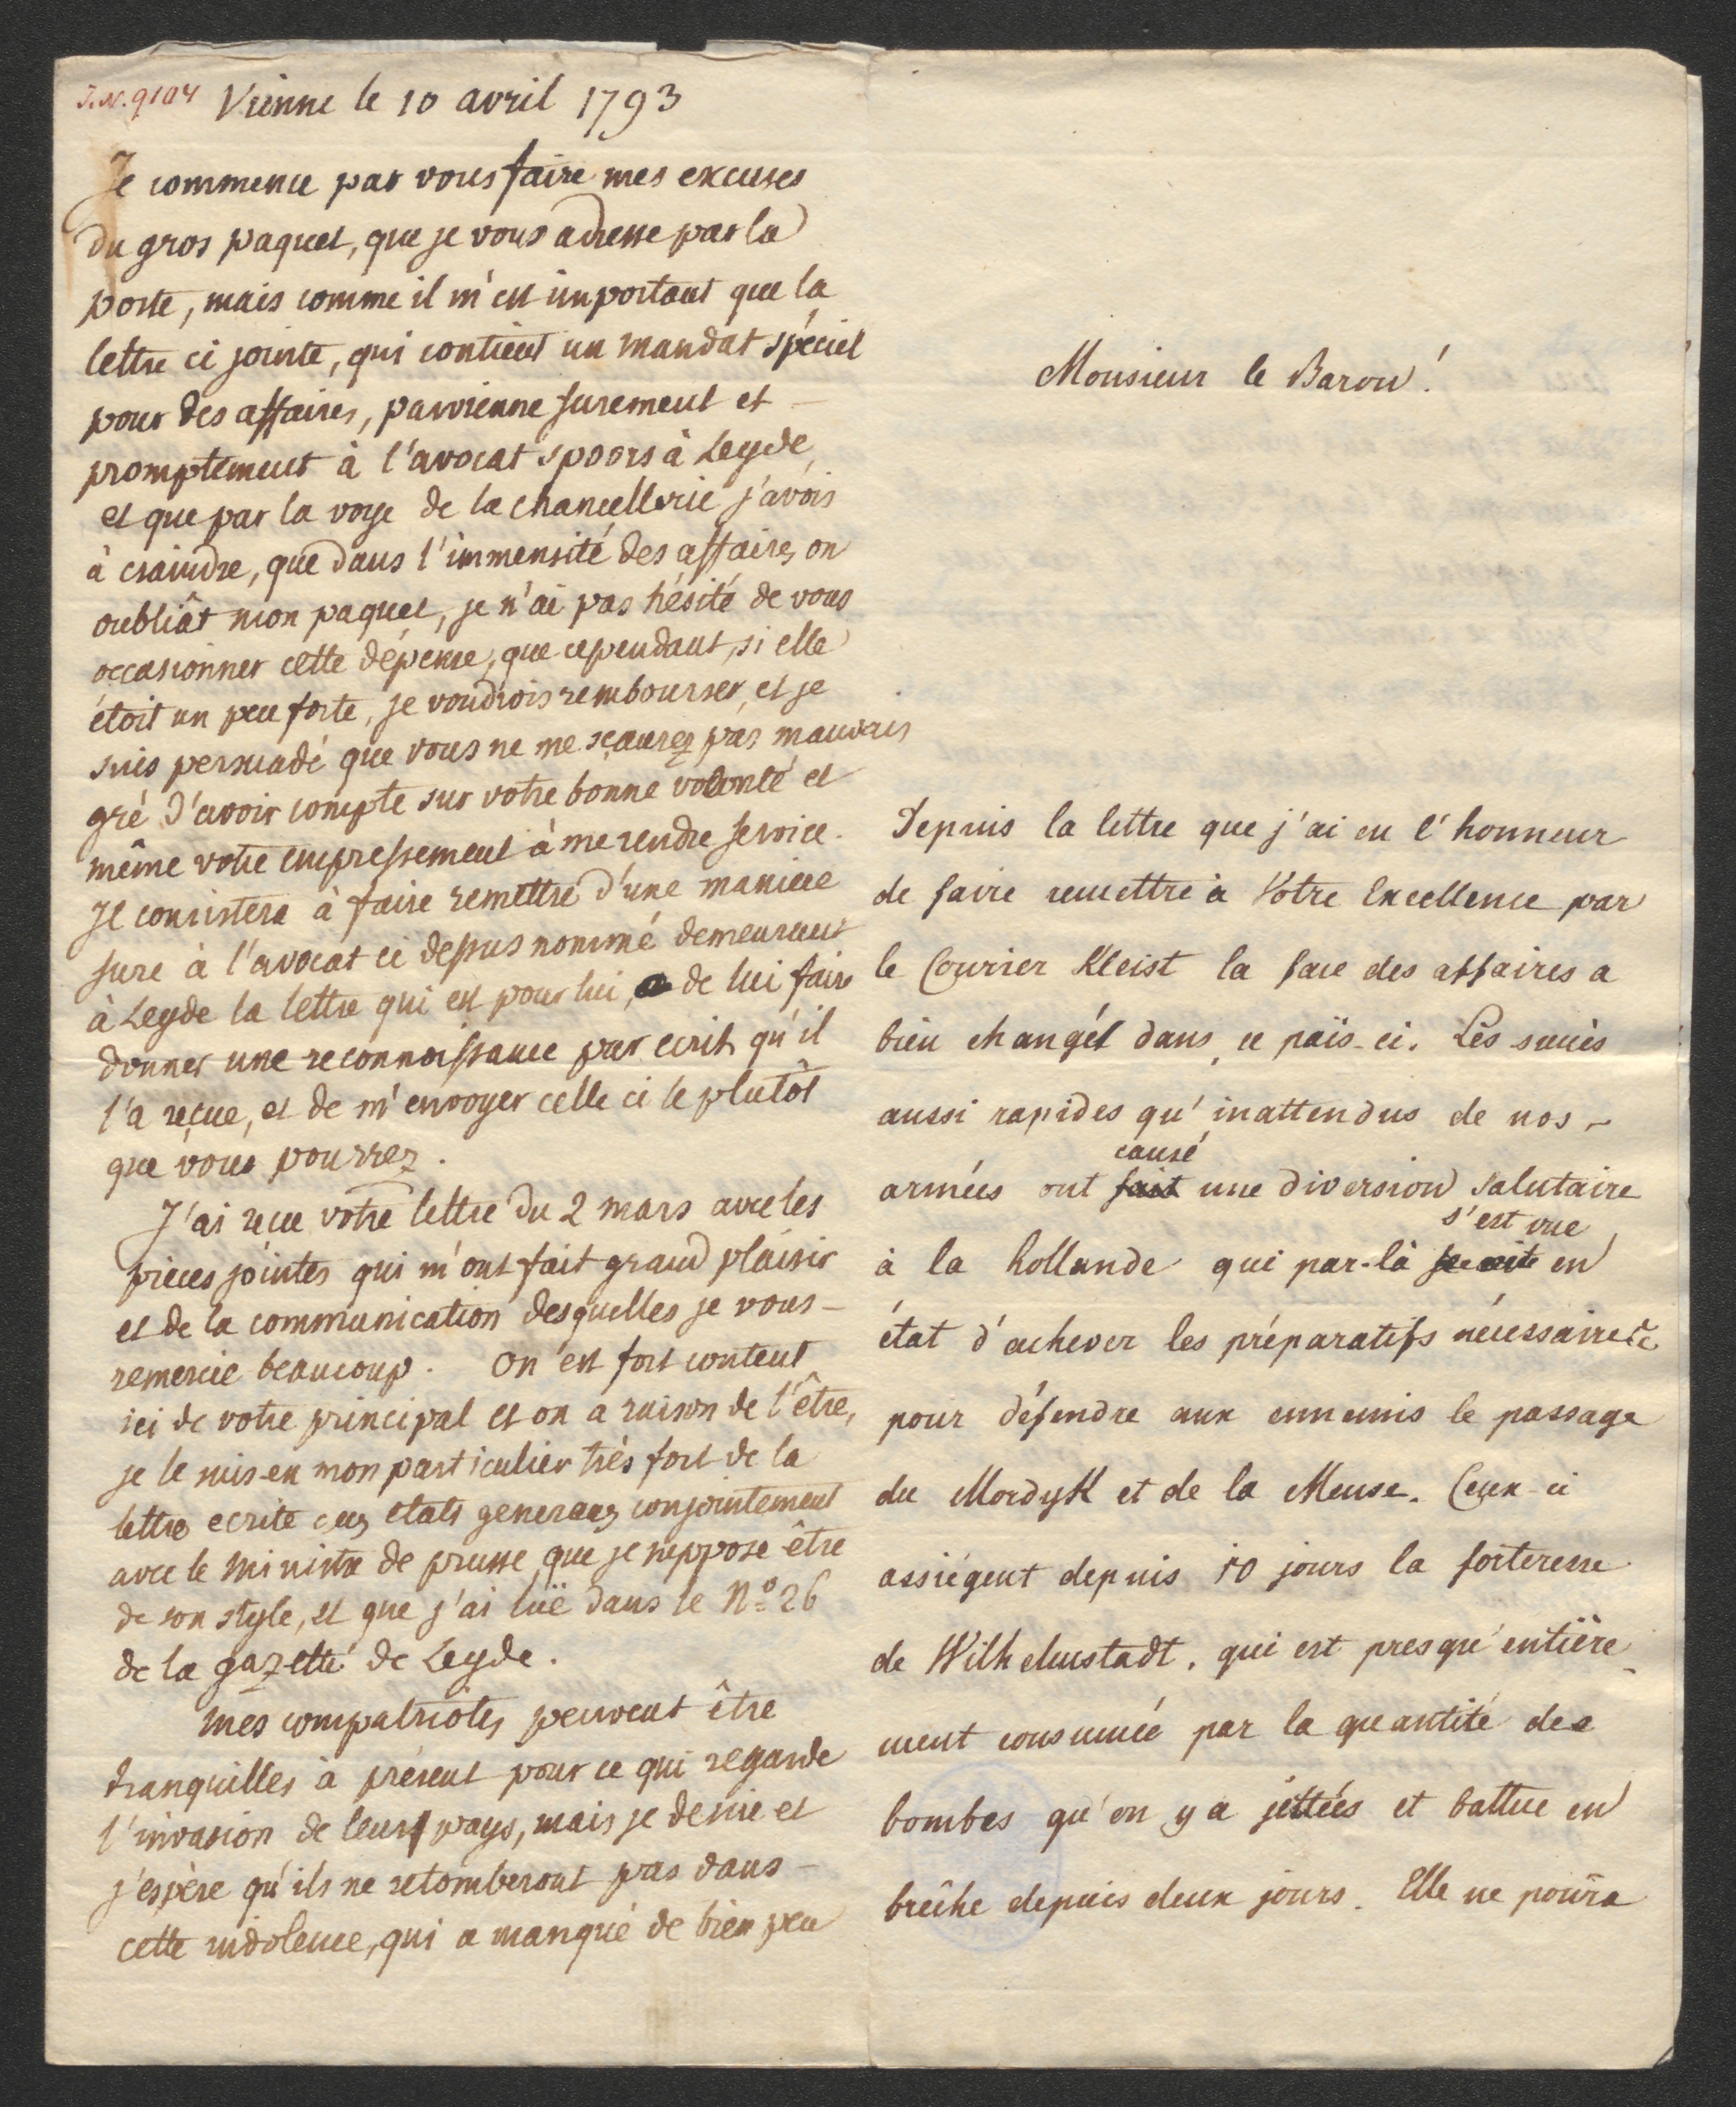 J.N. 9104
Vienne le 10 avril 1793
Je commence par vous faire mes excuses
du gros paquet, que je vous adresse par la
poste, mais comme il m'est important que la
lettre ci jointe, qui contient un mandat speciel
pour des affaires, parvienne surement et —
promptement à l'avocat Spoors à Leyde,
et que par la voye de la chancellerie j'avois
à craindre, que dans l'immensité des affaires on
oubliât mon paquet, je n'ai pas hésité de vous
occasionner cette dépense, que cependant, si elle
étoit un peu forte, je voudrois rembourser, et je
suis persuadé que vous ne me sçaurez pas mauvais
gré d'avoir compté sur votre bonne volonté et
même votre empressement à me rendre service.
Il consistera à faire remettre d'une maniere
sure à l'avocat ci dessus nommé demeurant
à Leyde la lettre qui est pour lui, de lui faire
donner une reconnoissance par ecrit qu'il
l'a reçue, et de m'envoyer celle ci le plutôt
que vous pourrez.
J'ai reçu votre lettre du 2 mars avec les
pieces jointes qui m'ont fait grand plaisir
et de la communication desquelles je vous —
remercie beaucoup. On est fort content
ici de votre principal et on a raison de l'être,
je le suis en mon particulier très fort de la
lettre ecrite aux etats generaux conjointement
avec le Ministre de prusse, que je suppose être
de son style, et que j'ai luë dans le Nº 26
de la gazette de Leyde.
Mes compatriotes peuvent être
tranquilles à présent pour ce qui regarde
l'invasion de leurs pays, mais je desire et
j'espère qu'ils ne retomberont pas dans —
cette indolence, qui a manqué de bien peu
Monsieur le Baron!
Depuis la lettre que j'ai eu l'honneur
de faire remettre à Votre Excellence par
le Courier Kleist la face des affaires a
bien changé dans ce païs-ci. Les succès
aussi rapides qu'inattendus de nos –
causé
armées ont fait une diversion salutaire
s'est vue
à la hollande qui par-là se voit en
état d'achever les préparatifs nécessaires
pour défendre aux ennemis le passage
du Mordyk et de la Meuse. Ceux-ci
assiégent depuis 10 jours la forteresse
de Wilhelmstadt, qui est presqu'entière-
ment consumée par la quantité des
bombes qu'on y a jettées et battue en
brêche depuis deux jours. Elle ne poura